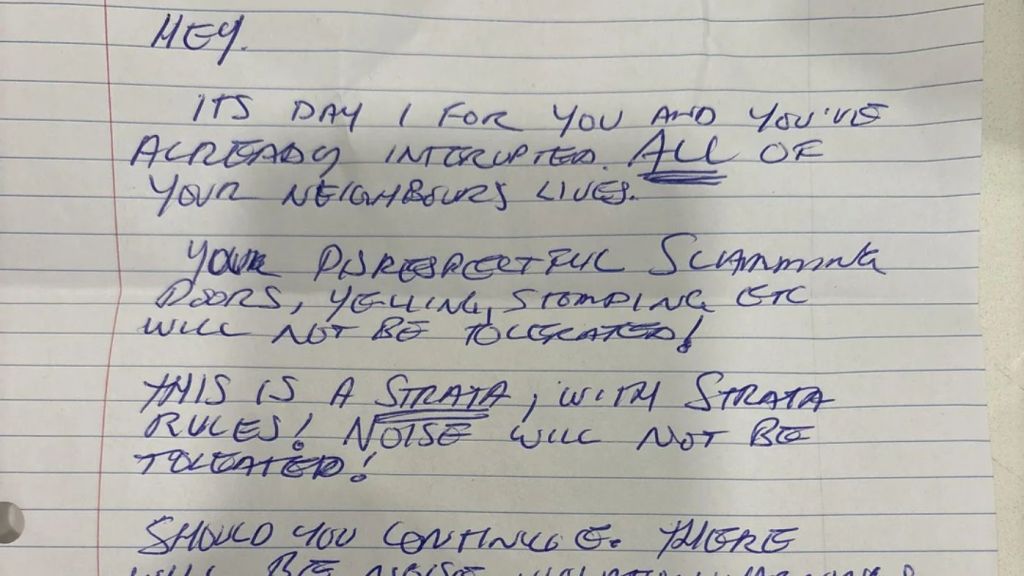 HEY.
ITS DAY 1 FOR YOU AND YOU'VE
ALREADY INTERUPTED. ALL OF
YOUR NEIGHBOURS LIVES.
YOUR DISRESPECTFUL SLAMMING
DOORS, YELLING, STOMPING ETC
WILL NOT BE TOLERATED!
THIS IS A STRATA, WITH STRATA
RULES! NOISE WILL NOT BE
TOLEATED!
SHOULD YOU CONTINUE. THERE
WILL BE NOISE